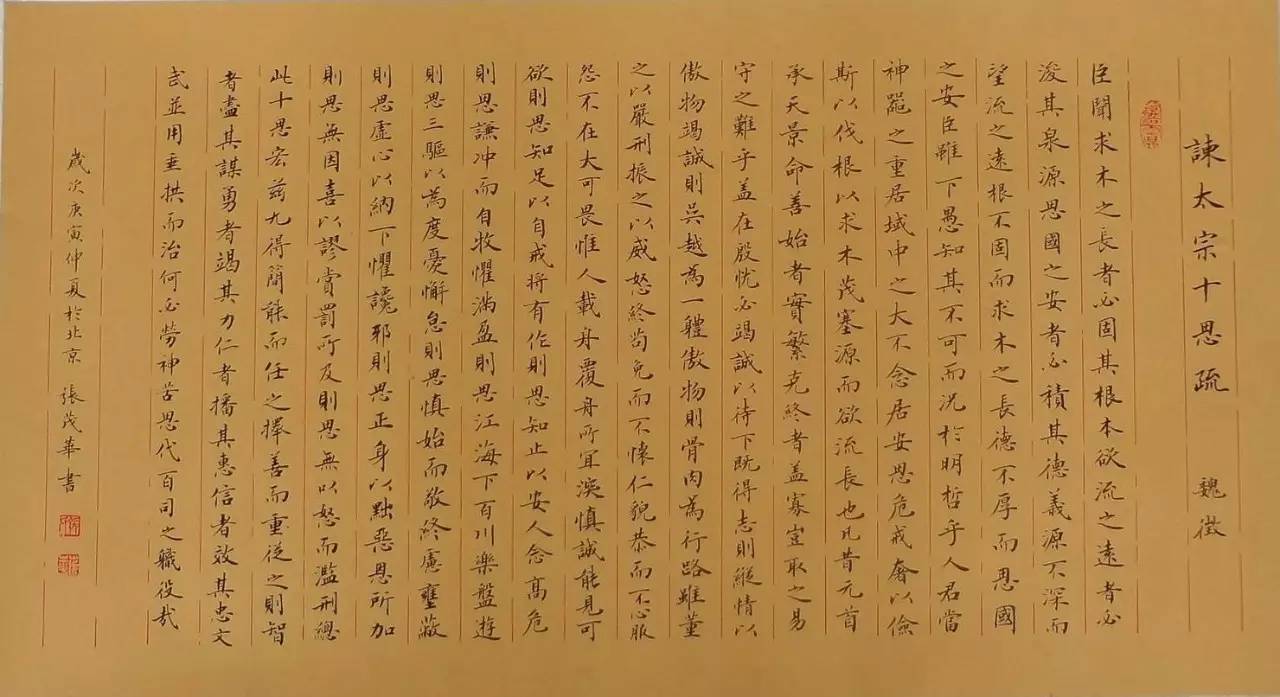 諫太宗十思疏 魏徵
臣聞求木之長者必固其根本欲流之遠者必
浚其泉源思國之安者必積其德義源不深而
望流之遠根不固而求木之長德不厚而思國
之安臣雖下愚知其不可而況於明哲乎人君當
神器之重居域中之大不念居安思危戒奢以儉
斯以伐根以求木茂塞源而欲流長也凡昔元首
承天景命善始者實繁克終者蓋寡豈取之易
守之難乎蓋在殷忧必竭誠以待下既得志則縱情以
傲物竭誠則吳越為一體傲物則骨肉為行路雖董
之以嚴刑振之以威怒終苟免而不懷仁貌恭而不心服
怨不在大可畏惟人載舟覆舟所宜深慎誠能見可
欲則思知足以自戒將有作則思知止以安人念高危
則思謙沖而自牧懼滿盈則思江海下百川樂盤遊
則思三驅以為度憂懈怠則思慎始而敬終慮壅蔽
則思虛心以納下懼讒邪則思正身以黜惡恩所加
則思無因喜以謬賞罰所及則思無以怒而濫刑總
此十思宏茲九得簡能而任之擇善而從之則智
者盡其謀勇者竭其力仁者播其惠信者效其忠文
武並用垂拱而治何必勞神苦思代百司之職役哉
歲次庚寅仲夏於北京 張茂華書